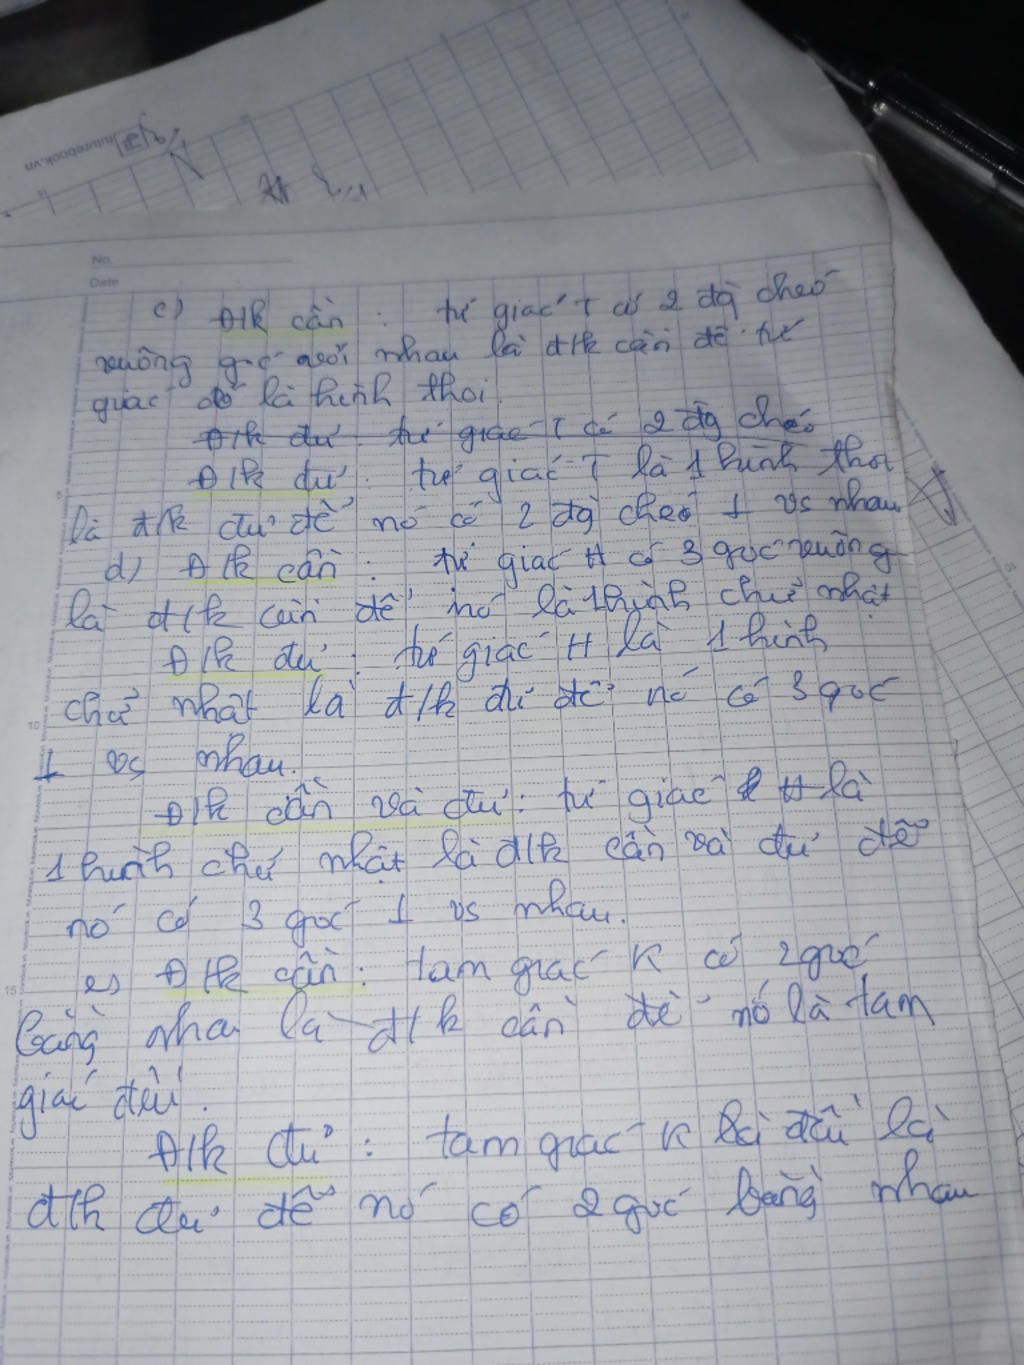 futurebook.vn
No.
Date
c) Đ/k cần : tứ giác T có 2 đg chéo
vuông góc với nhau là đ/k cần để tứ
giác đó là hình thoi.
Đ/k đủ: tứ giác T có 2 đg chéo
Đ/k đủ: tứ giác T là 1 hình thoi
là đ/k đủ để nó có 2 đg chéo ⊥ vs nhau
d) Đ/k cần : tứ giác H có 3 góc vuông
là đ/k cần để nó là 1 hình chữ nhật
Đ/k đủ: tứ giác H là 1 hình
chữ nhật là đ/k đủ để nó có 3 góc
⊥ vs nhau.
Đ/k cần và đủ: tứ giác H là
1 hình chữ nhật là đ/k cần và đủ để
nó có 3 góc ⊥ vs nhau.
e) Đ/k cần: tam giác K có 2 góc
bằng nha là đ/k cần để nó là tam
giác đều.
Đ/k đủ : tam giác K là đều là
đ/k đủ để nó có 2 góc bằng nhau
5
10
15